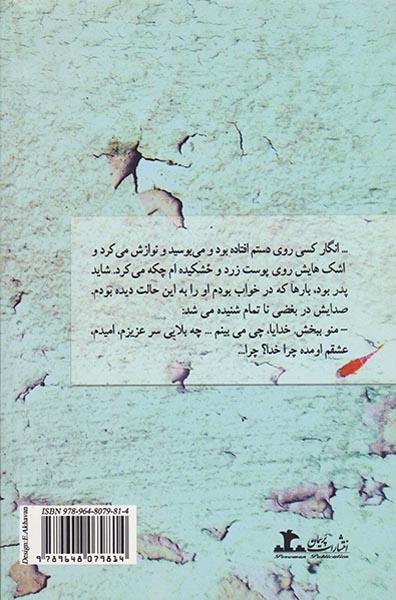 ... انگار کسی روی دستم افتاده بود و می‌بوسید و نوازش می‌کرد و
اشک هایش روی پوست زرد و خشکیده ام چکه می‌کرد. شاید
پدر بود، بارها که در خواب بودم او را به این حالت دیده بودم.
صدایش در بغضی نا تمام شنیده می شد:
- منو ببخش. خدایا، چی می بینم ... چه بلایی سر عزیزم، امیدم،
عشقم اومده چرا خدا؟ چرا...
ISBN 978-964-8079-81-4
9 789648 079814
Design: E. Akhavan
انتشارات پریمان
Pereman Publication